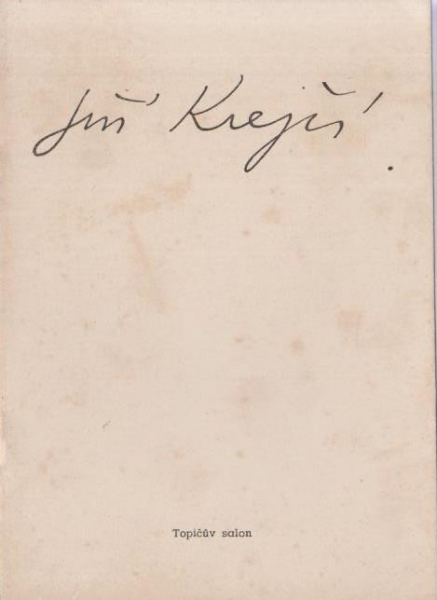 Jiří Krejčí
Topičův salon